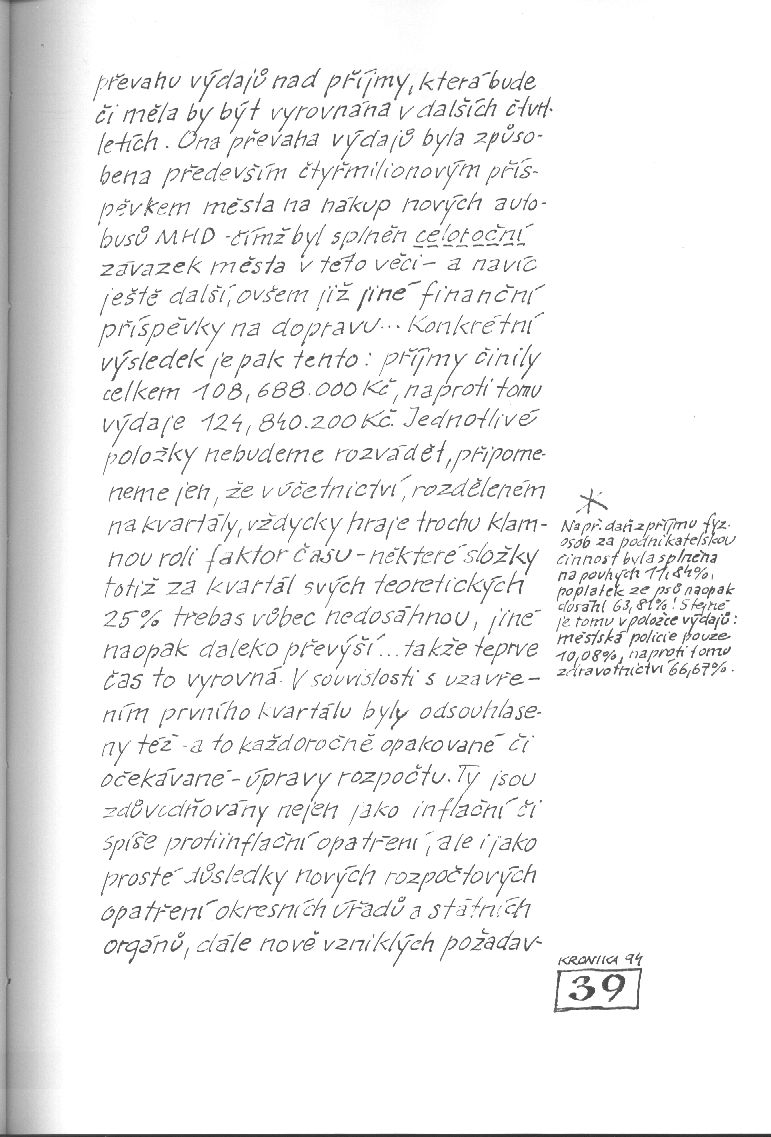 převahu výdajů nad příjmy, která bude
či měla by být vyrovnána v dalších čtvrt-
letích. Ona převaha výdajů byla způso-
bena především čtyřmilionovým přís-
pěvkem města na nákup nových auto-
busů MHD - čímž byl splněn celoroční
závazek města v této věci - a navíc
ještě další, ovšem již jiné finanční
příspěvky na dopravu... Konkrétní
výsledek je pak tento: příjmy činily
celkem 108,688.000 Kč, naproti tomu
výdaje 124,840.200 Kč. Jednotlivé
položky nebudeme rozvádět, připome-
neme jen, že v účetnictví, rozděleném
na kvartály, vždycky hraje trochu klam-
nou roli faktor času - některé složky
totiž za kvartál svých teoretických
25% třebas vůbec nedosáhnou, jiné
naopak daleko převýší... takže teprve
čas to vyrovná. V souvislosti s uzavře-
ním prvního kvartálu byly odsouhlase-
ny též - a to každoročně opakované či
očekávané - úpravy rozpočtu. Ty jsou
zdůvodňovány nejen jako inflační či
spíše protiinflační opatření, ale i jako
prosté důsledky nových rozpočtových
opatření okresních úřadů a státních
orgánů, dále nově vzniklých požadav-
*
Např. daň z příjmu fyz.
osob za podnikatelskou
činnost byla splněna
na pouhých 11,84%,
poplatek ze psů naopak
dosáhl 63,81%! Stejně
je tomu v položce výdajů:
městská policie pouze
10,08%, naproti tomu
zdravotnictví 66,67%.
KRONIKA 94
39